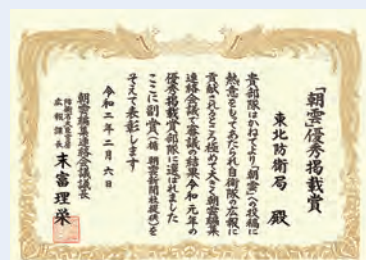 「朝雲」優秀掲載賞
東北防衛局 殿
貴部隊はかねてより「朝雲」への投稿に
熱意をもってあたられ自衛隊の広報に
貢献されるところ極めて大きく朝雲編集
連絡会議で審議の結果令和元年の
優秀掲載賞部隊に選ばれました
ここに副賞(楯 朝雲新聞社提供)を
そえて表彰します
令和二年二月六日
朝雲編集連絡会議議長
防衛省大臣官房
広報課長 末富理栄